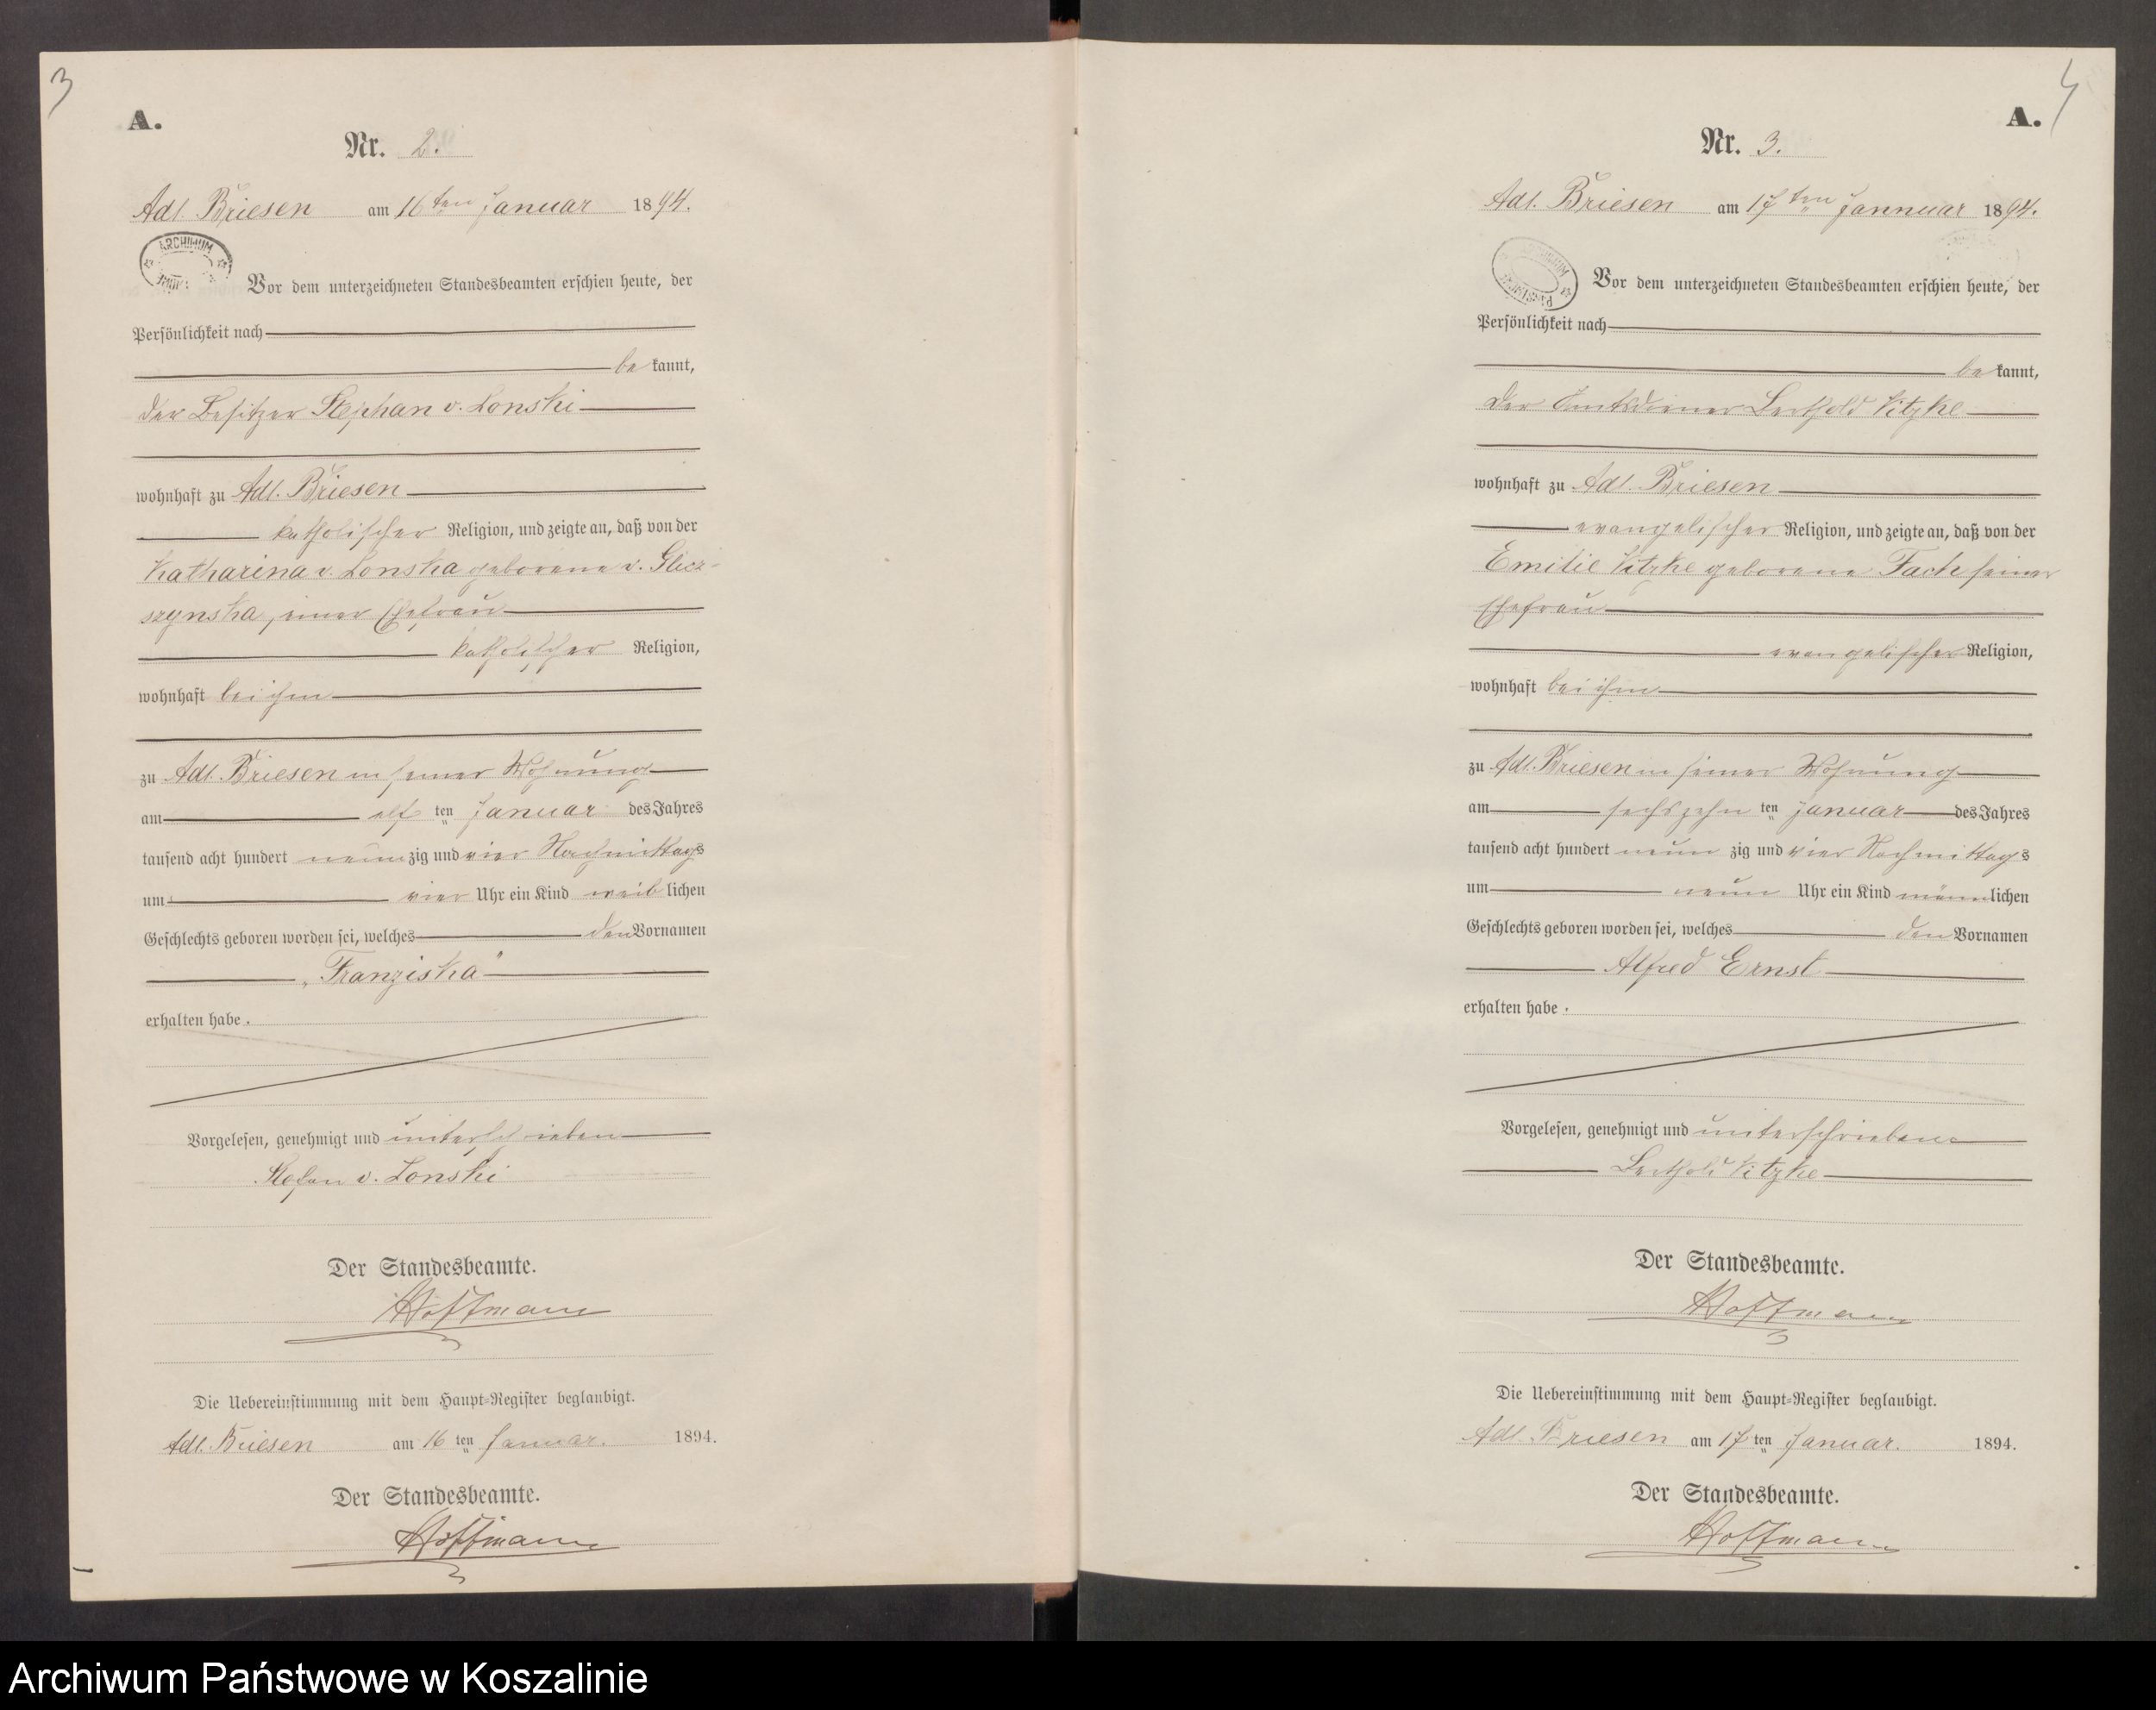 3
A.
Nr. 2.
Adl. Briesen am 16ten Januar 1894.
ARCHIWUM
Vor dem unterzeichneten Standesbeamten erschien heute, der
Persönlichkeit nach
be kannt,
der Besitzer Stephan v. Lonski
wohnhaft zu Adl. Briesen
katholischer Religion, und zeigte an, daß von der
Katharina v. Lonska geborene v. Glicz-
szynska, einer Ehefrau
katholischer Religion,
wohnhaft bei ihm
zu Adl. Briesen in seiner Wohnung
am elf ten Januar des Jahres
tausend acht hundert neun zig und vier Nachmittags
um vier Uhr ein Kind weib lichen
Geschlechts geboren worden sei, welches den Vornamen
„Franziska“
erhalten habe.
Vorgelesen, genehmigt und unterschrieben
Stefan v. Lonski
Der Standesbeamte.
Hoffmann
Die Uebereinstimmung mit dem Haupt=Register beglaubigt.
Adl. Briesen am 16 ten Januar. 1894.
Der Standesbeamte.
Hoffmann
4
A.
Nr. 3.
Adl. Briesen am 17ten Jannuar 1894.
ARCHIWUM
Vor dem unterzeichneten Standesbeamten erschien heute, der
Persönlichkeit nach
be kannt,
der Amtsdiener Berthold Kitzke
wohnhaft zu Adl. Briesen
evangelischer Religion, und zeigte an, daß von der
Emilie Kitzke geborene seiner
Ehefrau
evangelischer Religion,
wohnhaft bei ihm
zu Adl. Briesen in seiner Wohnung
am sechszehn ten Januar des Jahres
tausend acht hundert neun zig und vier Nachmittags
um neun Uhr ein Kind männ lichen
Geschlechts geboren worden sei, welches den Vornamen
Alfred Ernst
erhalten habe.
Vorgelesen, genehmigt und unterschrieben
Berthold Kitzke
Der Standesbeamte.
Hoffmann
Die Uebereinstimmung mit dem Haupt=Register beglaubigt.
Adl. Briesen am 17 ten Januar. 1894.
Der Standesbeamte.
Hoffmann
Archiwum Państwowe w Koszalinie